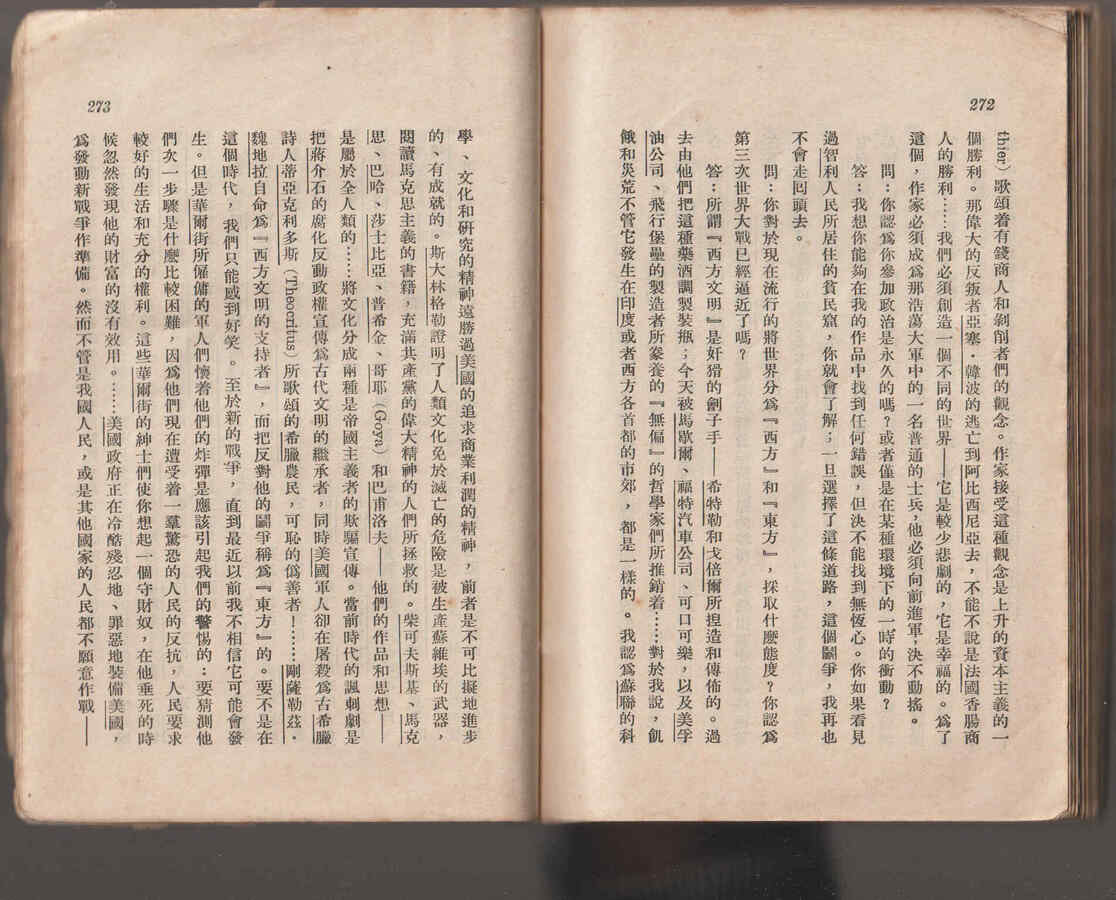 272
thier）歌頌着有錢商人和剝削者們的觀念。作家接受這種觀念是上升的資本主義的一
個勝利。那偉大的反叛者亞塞·韓波的逃亡到阿比西尼亞去，不能不說是法國香腸商
人的勝利……我們必須創造一個不同的世界——它是較少悲劇的，它是幸福的。爲了
這個，作家必須成爲那浩蕩大軍中的一名普通的士兵，他必須向前進軍，決不動搖。
問：你認爲你參加政治是永久的嗎？或者僅是在某種環境下的一時的衝動？
答：我想你能夠在我的作品中找到任何錯誤，但決不能找到無恆心。你如果看見
過智利人民所居住的貧民窟，你就會了解；一旦選擇了這條道路，這個鬪爭，我再也
不會走囘頭去。
問：你對於現在流行的將世界分爲『西方』和『東方』，採取什麽態度？你認爲
第三次世界大戰已經逼近了嗎？
答：所謂『西方文明』是奸猾的劊子手——希特勒和戈倍爾所捏造和傳佈的。過
去由他們把這種藥酒調製裝瓶；今天被馬歇爾、福特汽車公司、可口可樂，以及美孚
油公司、飛行堡壘的製造者所豢養的『無偏』的哲學家們所推銷着……對於我說，飢
餓和災荒不管它發生在印度或者西方各首都的市郊，都是一樣的。我認爲蘇聯的科
273
學、文化和硏究的精神遠勝過美國的追求商業利潤的精神，前者是不可比擬地進步
的、有成就的。斯大林格勒證明了人類文化免於滅亡的危險是被生產蘇維埃的武器，
閱讀馬克思主義的書籍，充滿共產黨的偉大精神的人們所拯救的。柴可夫斯基、馬克
思、巴哈、莎士比亞、普希金、哥耶（Goya）和巴甫洛夫——他們的作品和思想——
是屬於全人類的……將文化分成兩種是帝國主義者的欺騙宣傳。當前時代的諷刺劇是
把蔣介石的腐化反動政權宣傳爲古代文明的繼承者，同時美國軍人卻在屠殺爲古希臘
詩人蒂亞克利多斯（Theocritus）所歌頌的希臘農民，可恥的僞善者！……剛薩勒茲·
魏地拉自命爲『西方文明的支持者』，而把反對他的鬪爭稱爲『東方』的。要不是在
這個時代，我們只能感到好笑。至於新的戰爭，直到最近以前我不相信它可能會發
生。但是華爾街所僱傭的軍人們懷着他們的炸彈是應該引起我們的警惕的：要猜測他
們次一步驟是什麽比較困難，因爲他們現在遭受着一羣驚恐的人民的反抗，人民要求
較好的生活和充分的權利。這些華爾街的紳士們使你想起一個守財奴，在他垂死的時
候忽然發現他的財富的沒有效用。……美國政府正在冷酷殘忍地、罪惡地裝備美國，
爲發動新戰爭作準備。然而不管是我國人民，或是其他國家的人民都不願意作戰——